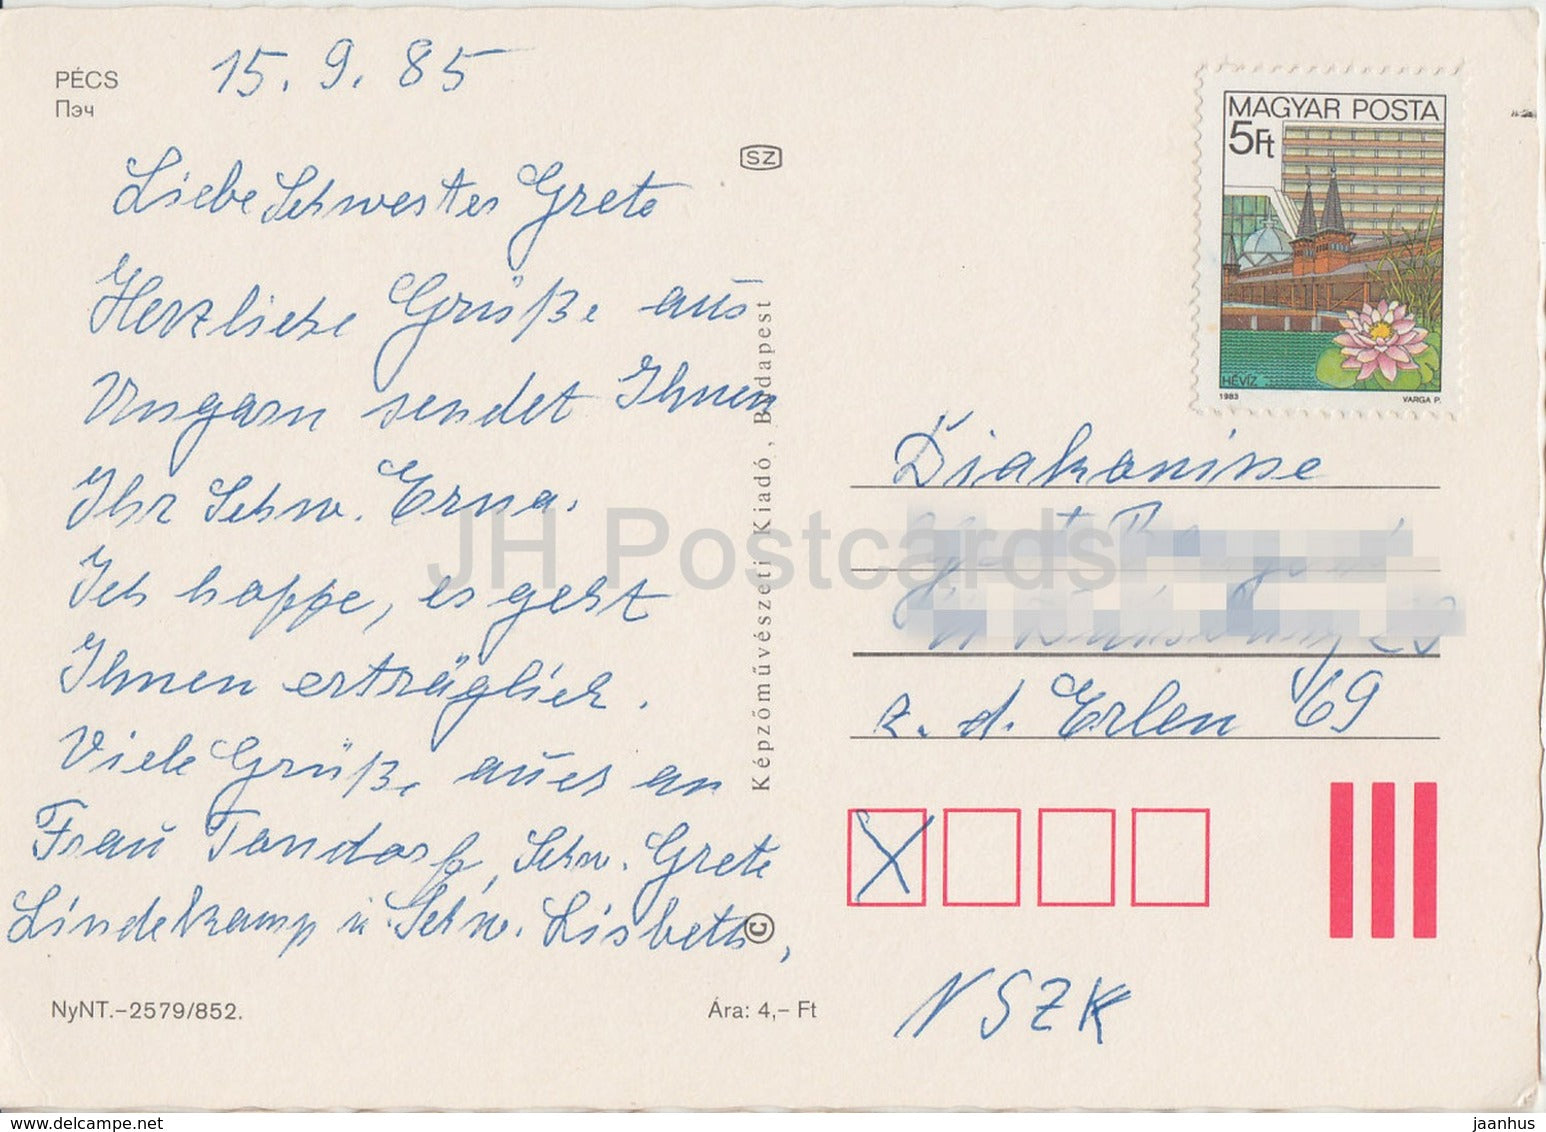 PÉCS
Пэч
15. 9. 85
Liebe Schwester Grete
Herzliche Grüße aus
Ungarn sendet Ihnen
Ihr Schw. Erna.
Ich hoffe, es geht
Ihnen erträglich.
Viele Grüße auch an
Frau Tandorf, Schw. Grete
Lindekamp u. Schw. Lisbeth,
NyNT.-2579/852.
Ára: 4,- Ft
SZ
Képzőművészeti Kiadó, Budapest
©
MAGYAR POSTA
5Ft
HÉVÍZ
1983
VARGA P.
Diakonisse
z. d. Erlen 69
NSZK
JH Postcards
delcampe.net
jaanhus